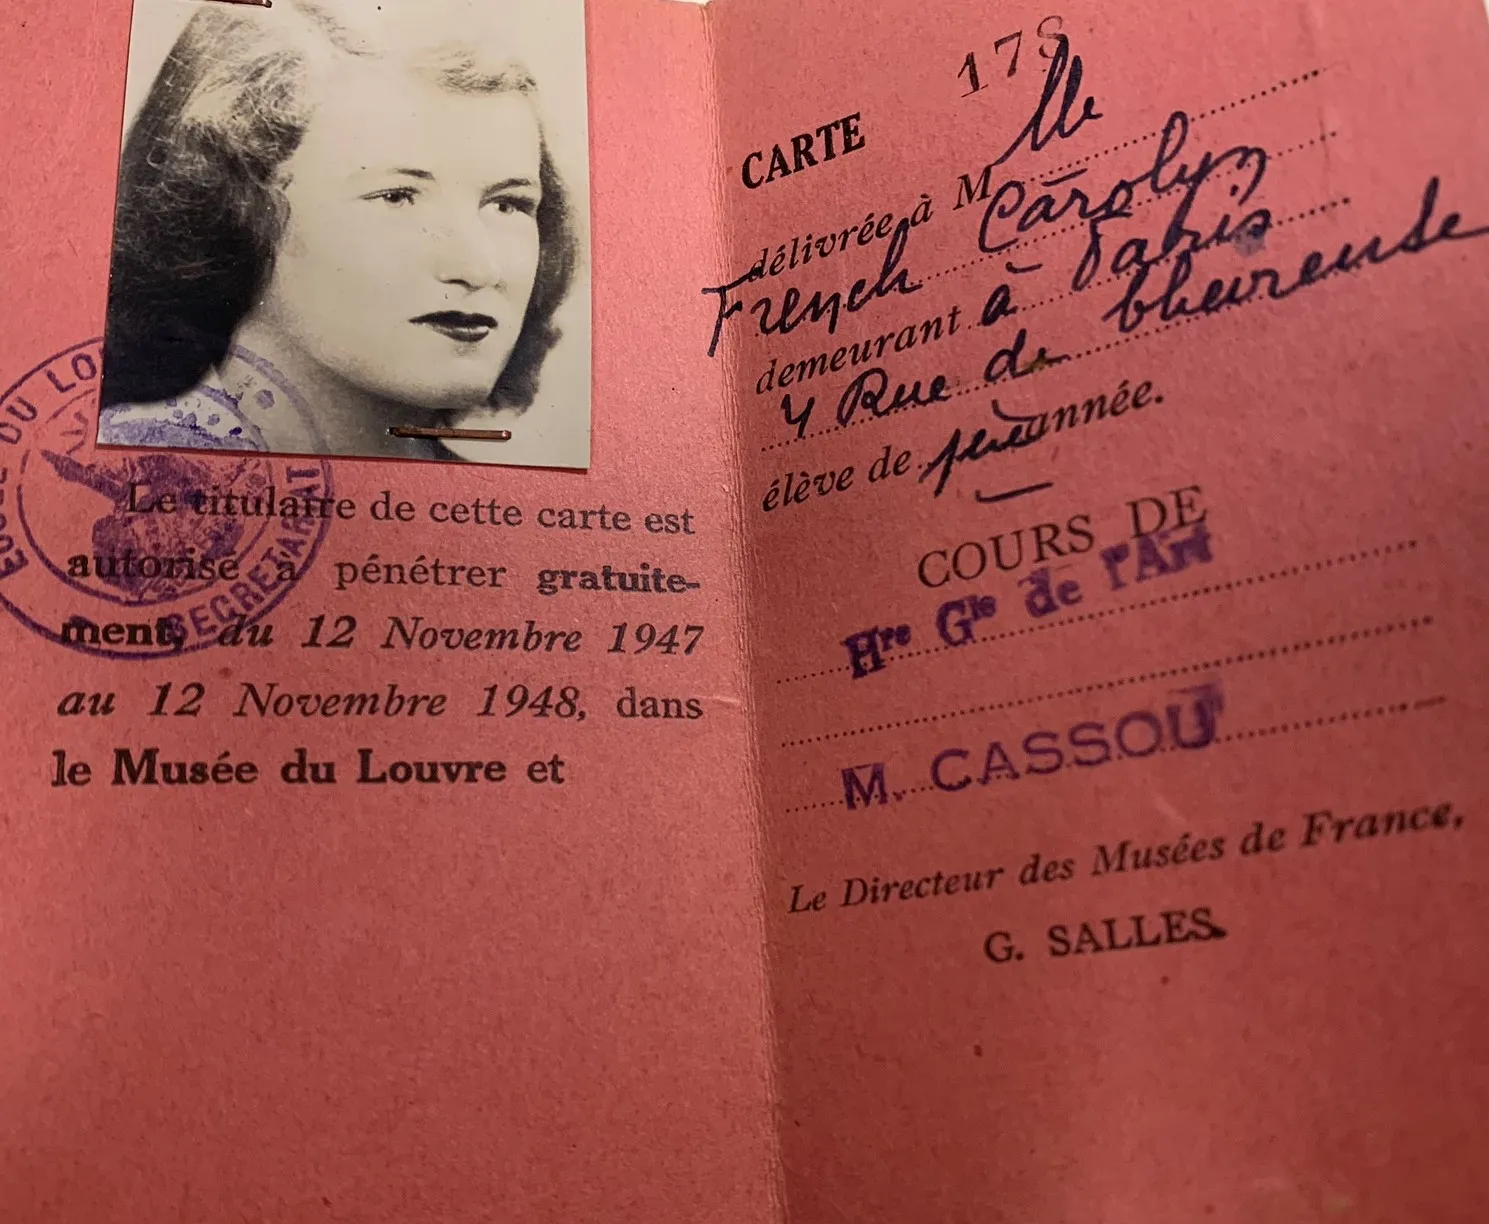 ECOLE DU LO
SECRETARIAT
Le titulaire de cette carte est
autorisé à pénétrer gratuite-
ment, du 12 Novembre 1947
au 12 Novembre 1948, dans
le Musée du Louvre et
178
CARTE
délivrée à Mlle
French Carolyn
demeurant à à Paris
4 Rue de
élève de année.
COURS DE
Hre Gle de l'Art
M. CASSOU
Le Directeur des Musées de France,
G. SALLES